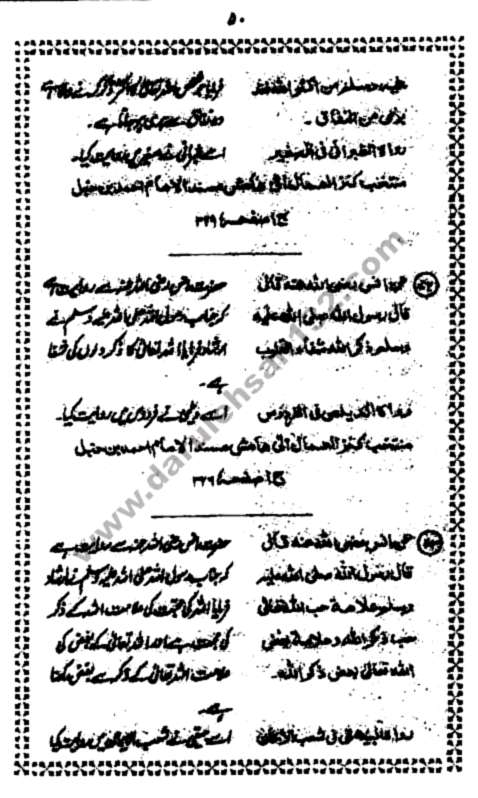 ۵۰
علیه وسلم من اکثر ذکر الله فقد
برئ من النفاق۔
رواه الطبرانی فی الصغیر
فرمایا جو شخص اللہ تعالیٰ کا اکثر ذکر کرے وہ
نفاق سے بری ہو جاتا ہے۔
اسے طبرانی نے صغیر میں روایت کیا۔
منتخب کنز العمال علی هامش مسند الامام احمد بن حنبل
ج ۱ صفحہ
عن انس رضی الله عنه قال
قال رسول الله صلی الله علیه
وسلم ذکر الله شفاء القلوب
رواه الدیلمی فی الفردوس
حضرت انس رضی اللہ عنہ سے روایت ہے
کہ جناب رسول اللہ صلی اللہ علیہ وسلم نے
ارشاد فرمایا اللہ تعالیٰ کا ذکر دلوں کی شفا
ہے۔
اسے دیلمی نے فردوس میں روایت کیا۔
منتخب کنز العمال علی هامش مسند الامام احمد بن حنبل
ج ۱ صفحہ
عن انس رضی الله عنه قال
قال رسول الله صلی الله علیه
وسلم علامة حب الله تعالی
حب ذکر الله وعلامة بغض
الله تعالی بغض ذکر الله۔
رواه البیهقی فی شعب الایمان
حضرت انس رضی اللہ عنہ سے روایت ہے
کہ جناب رسول اللہ صلی اللہ علیہ وسلم نے ارشاد
فرمایا اللہ کی محبت کی علامت اللہ کے ذکر
کی محبت ہے اور اللہ تعالیٰ کے بغض کی
علامت اللہ تعالیٰ کے ذکر سے بغض رکھنا
ہے۔
اسے بیہقی نے شعب الایمان میں روایت کیا
www.darulehsan132.com